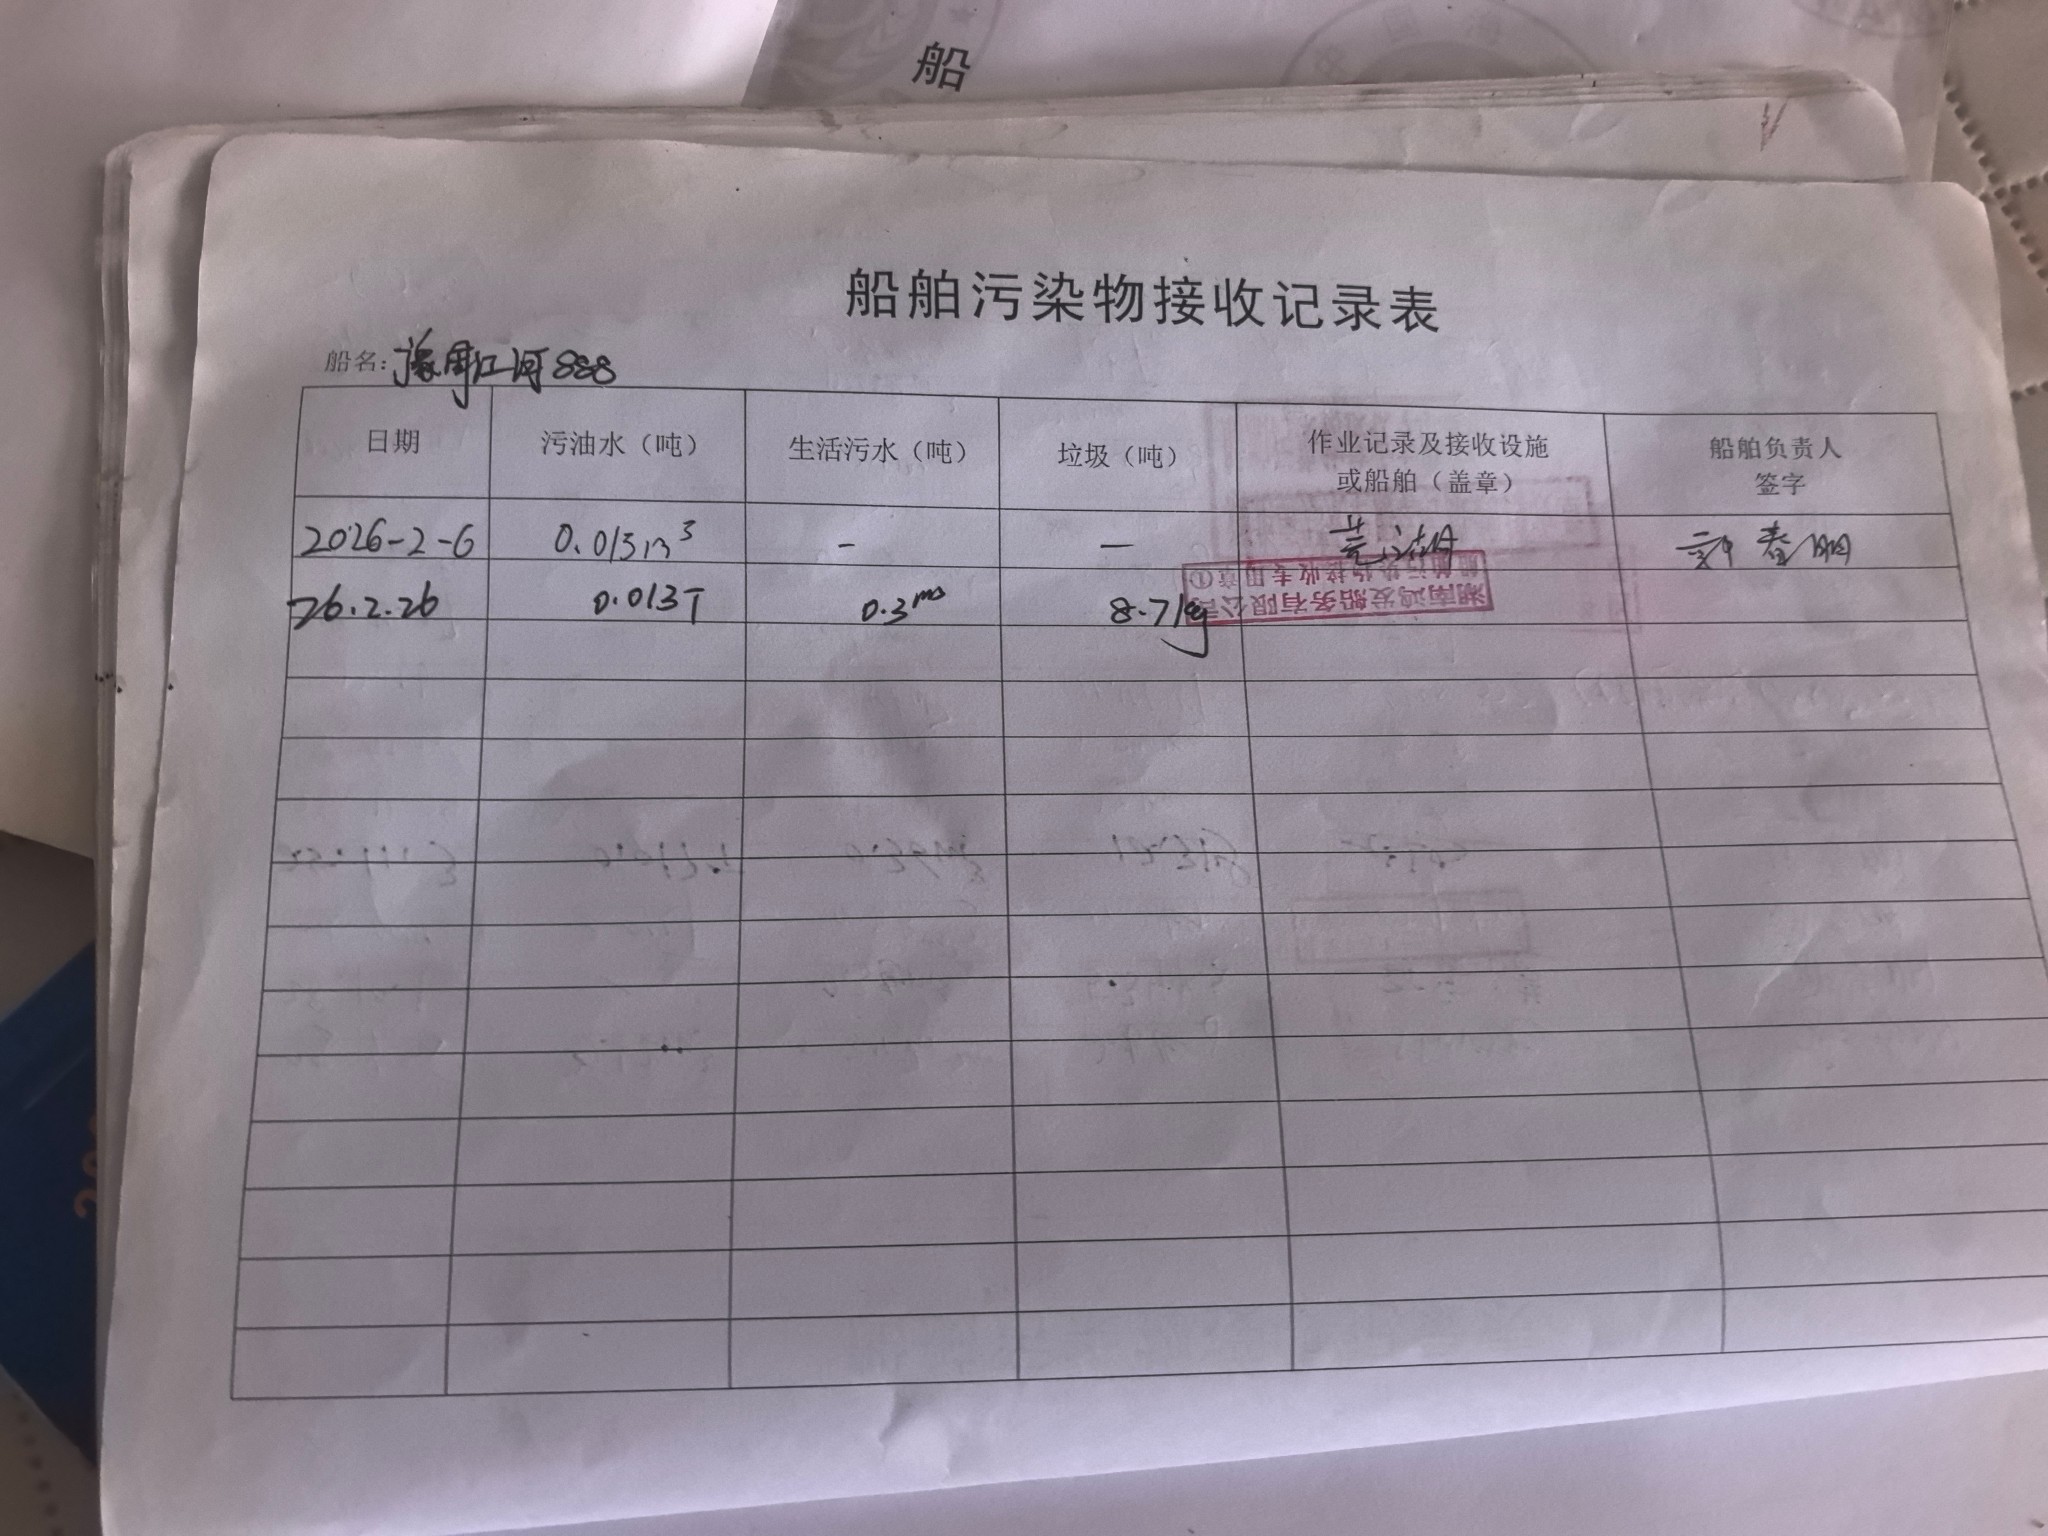 船
船舶污染物接收记录表
船名：豫周江河888
日期 污油水（吨） 生活污水（吨） 垃圾（吨） 作业记录及接收设施或船舶（盖章） 船舶负责人签字
2026-2-6 0.013m³ - — 春明
湖南鸿发船务有限公司
船舶污染物接收专用章①
26.2.26 0.013T 0.3m3 8.7kg